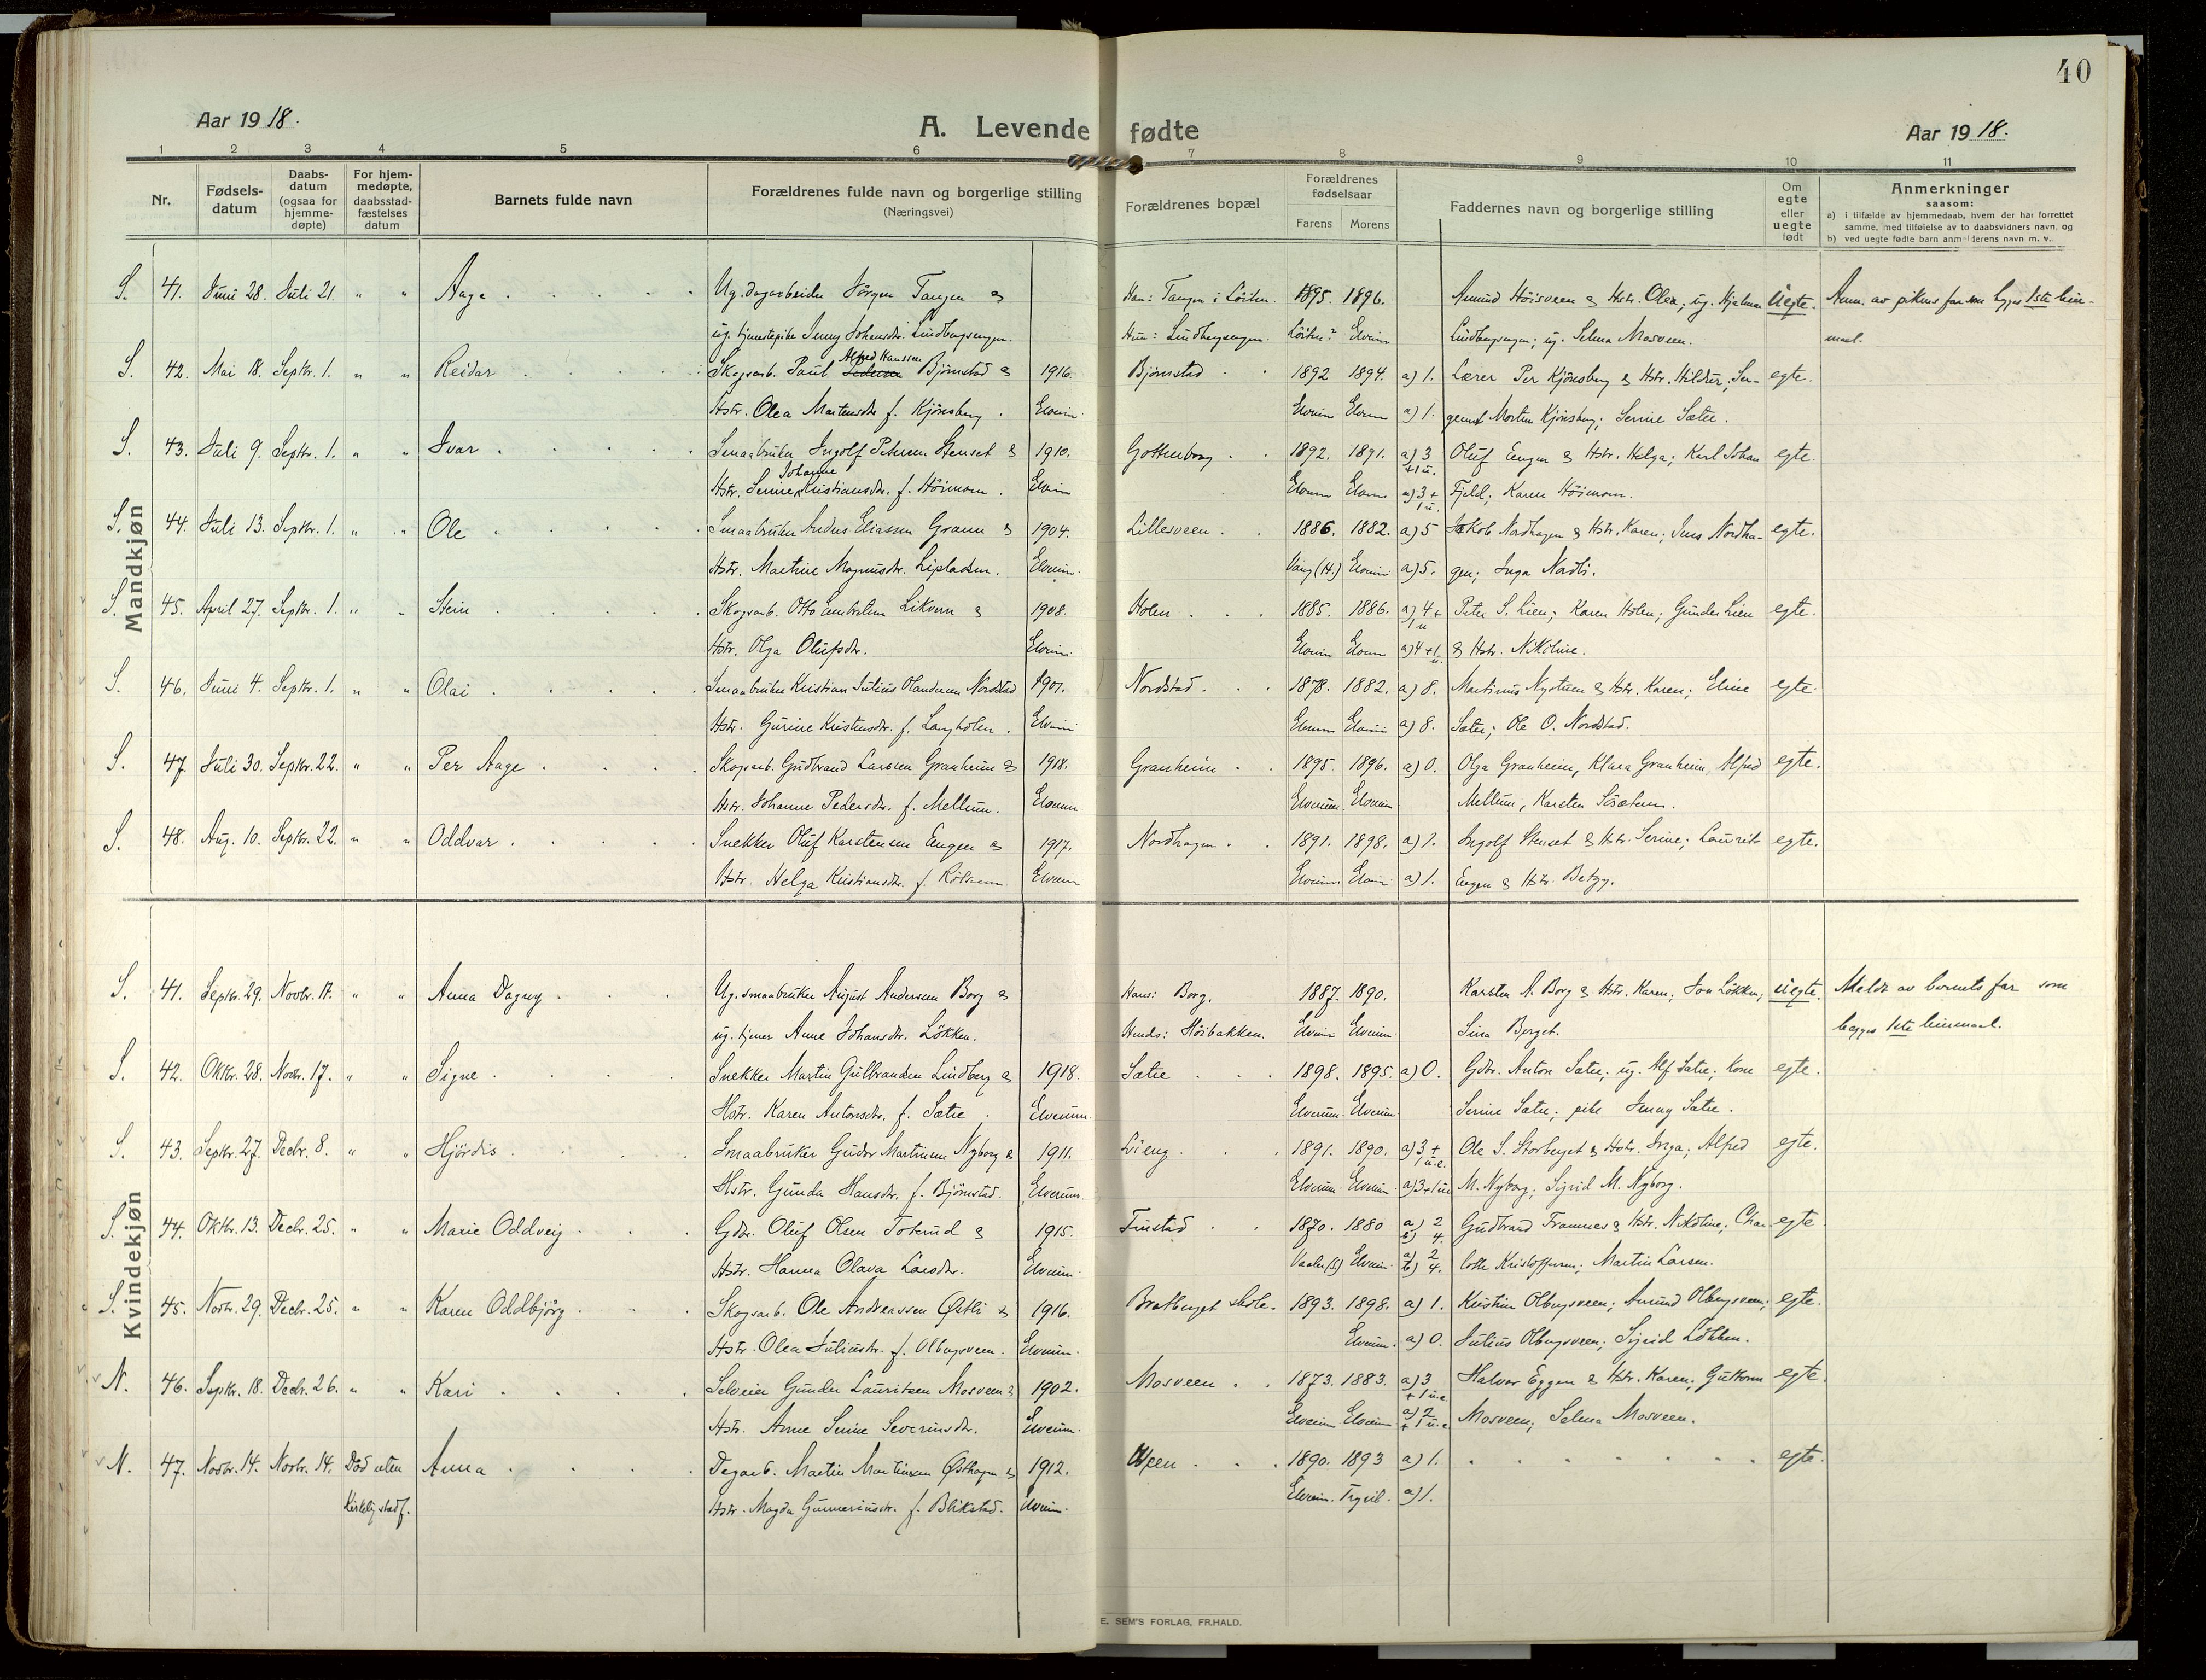 40
Aar 1918.
A. Levende fødte
Aar 1918.
1 2 3 4 5 6 7 8 9 10 11
Nr.
Fødsels-datum
Daabs-datum (ogsaa for hjemme-døpte)
For hjem-medøpte, daabsstad-fæstelses datum
Barnets fulde navn
Forældrenes fulde navn og borgerlige stilling
(Næringsvei)
Forældrenes bopæl
Forældrenes fødselsaar
Farens Morens
Faddernes navn og borgerlige stilling
Om egte eller uegte født
Anmerkninger
saasom:
a) i tilfælde av hjemmedaab, hvem der har forrettet samme, med tilføielse av to daabsvidners navn, og
b) ved uegte fødte barn anmelderens navn m. v.
Mandkjøn
S. 41. Juni 28. Juli 21. " " Aage Ug. dagarbeider Jörgen Tangen & Han: Tangen i Löiten. 1895. 1896. Amund Höisveen & Hstr. Olea; ug. Hjalmar uegte. Anm. av pikens far som begges 1ste leier-
ug. tjenestepike Jenny Johansdr. Lindbergsengen. Hun: Lindbergsengen. Löiten? Elverum Lindbergsengen; ug. Selma Mosveen. maal.
S. 42. Mai 18. Septbr. 1. " " Reidar Skogsarb. Paul Alfred Hanssen Björnstad & 1916. Björnstad 1892 1894. a) 1. Lærer Per Kjönsberg & Hstr. Hildur; Ser- egte.
Hstr. Olea Martensdr. f. Kjönsberg. Elverum. Elverum Elverum a) 1. geant Morten Kjönsberg; Serine Sætre.
S. 43. Juli 9. Septbr. 1. " " Ivar Smaabruker Ingolf Petersen Stenset & 1910. Gottenborg 1892. 1891. a) 3 +1u. Oluf Engen & Hstr. Helga; Karl Johan egte.
Hstr. Serine Johanne Kristiansdr. f. Höimom. Elverum Elverum Elverum a) 3 + 1u. Fjeld; Karen Höimom.
S. 44. Juli 13. Septbr. 1. " " Ole Smaabruker Anders Eliassen Grann & 1904. Lillesveen. 1886. 1882. a) 5 Jakob Nordhagen & Hstr. Karen; Jens Nordha- egte.
Hstr. Martine Magnusdr. Lipladsen. Elverum. Vang (H.) Elverum a) 5. gen; Inga Nordli.
S. 45. April 27. Septbr. 1. " " Stein Skogsarb. Otto Embretsen Likvern & 1908. Holen 1885. 1886. a) 4 + 1u Peter S. Lien; Karen Holen; Gunder Lien egte.
Hstr. Olga Olufsdr. Elverum. Elverum Elverum a) 4 +1u. & Hstr. Nikoline.
S. 46. Juni 4. Septbr. 1. " " Olai Smaabruker Kristian Julius Olandersen Nordstad 1901. Nordstad 1878. 1882. a) 8. Martinus Nystuen & Hstr. Karen; Eline egte.
Hstr. Gurine Kristensdr. f. Langholen. Elverum Elverum Elverum a) 8. Sæter; Ole O. Nordstad.
S. 47. Juli 30. Septbr. 22. " " Per Aage Skogsarb. Gudbrand Larssen Granheim & 1918. Granheim 1895. 1896. a) 0. Olga Granheim, Klara Granheim, Alfred egte.
Hstr. Johanne Pedersdr. f. Mellum. Elverum Elverum Elverum Mellum, Karsten Söætern.
S. 48. Aug. 10. Septbr. 22. " " Oddvar Snekker Oluf Karstensen Engen & 1917. Nordhagen 1891. 1898. a) 1. Ingolf Stenset & Hstr. Serine; Laurits egte.
Hstr. Helga Kristiansdr. f. Elverum Elverum. Elverum a) 1. Engen & Hstr. Betzy.
Kvindekjøn
S. 41. Septbr. 29. Novbr. 17. " " Anna Dagny Ug. smaabruker August Andersen Borg & Hans: Borg. 1887. 1890. Karsten A. Borg & Hstr. Karen; Jon Løkken; uegte. Meldt av barnets far som
ug. tjener Anne Johansdr. Lökken. Hends: Höibakken. Elverum Elverum Sina Berget. begges 1ste leiermaal.
S. 42. Oktbr. 28. Novbr. 17. " " Signe Snekker Martin Gulbrandsen Lindberg & 1918. Sætre 1898. 1895. a) 0. Gdbr. Anton Sætre; ug. Alf Sætre; kone egte.
Hstr. Karen Antonsdr. f. Sætre Elverum. Elverum. Elverum Serine Sætre; pike Jenny Sætre.
S. 43. Septbr. 27. Decbr. 8. " " Hjördis Smaabruker Gudor Martinsen Nyborg & 1911. Lieng 1891. 1890. a) 3 + 1 u.e. Ole S. Storberget & Hstr. Inga; Alfred egte.
Hstr. Gunda Hansdr. f. Björnstad. Elverum. Elverum Elverum a) 3 +1u M. Nyborg; Sigrid M. Nyborg.
S. 44. Oktbr. 13. Decbr. 25. " " Marie Oddveig Gdbr. Oluf Olsen Toterud & 1915. Finstad 1870. 1880 a) 2 b) 4. Gudbrand Framnes & Hstr. Nikoline; Char- egte
Hstr. Hanna Olava Larsdr. Elverum. Vaaler (S) Elverum. a) 2 b) 4. lotte Kristoffersen; Martin Larsen.
S. 45. Novbr. 29. Decbr. 25. " " Karen Oddbjörg Skogsarb. Ole Andreassen Østli & 1916. Bratberget skole. 1893. 1898. a) 1. Kristian Olbergsveen; Amund Olbergsveen; egte.
Hstr. Olea Juliusdr. f. Olbergsveen. Elverum. Elverum. a) 0. Julius Olbergsveen; Sigrid Lökken.
N. 46. Septbr. 18. Decbr. 26. " " Kari Selveier Gunder Lauritsen Mosveen & 1902. Mosveen 1873. 1883. a) 3 + 1 u.e Halvor Eggen & Hstr. Karen; Guttorm egte.
Hstr. Anne Serine Severinsdr. Elverum. Elverum Elverum a) 2 + 1 u.e Mosveen, Selma Mosveen.
N. 47. Novbr. 14. Novbr. 14. Död uten Anna Dagarb. Martin Martinsen Østhagen & 1912. 1890. 1893 a) 1. egte.
kirkelig stadf. Hstr. Magda Gunneriusdr. f. Blikstad. Elverum. Elverum. Trysil. a) 1.
E. SEM'S FORLAG, FR.HALD.